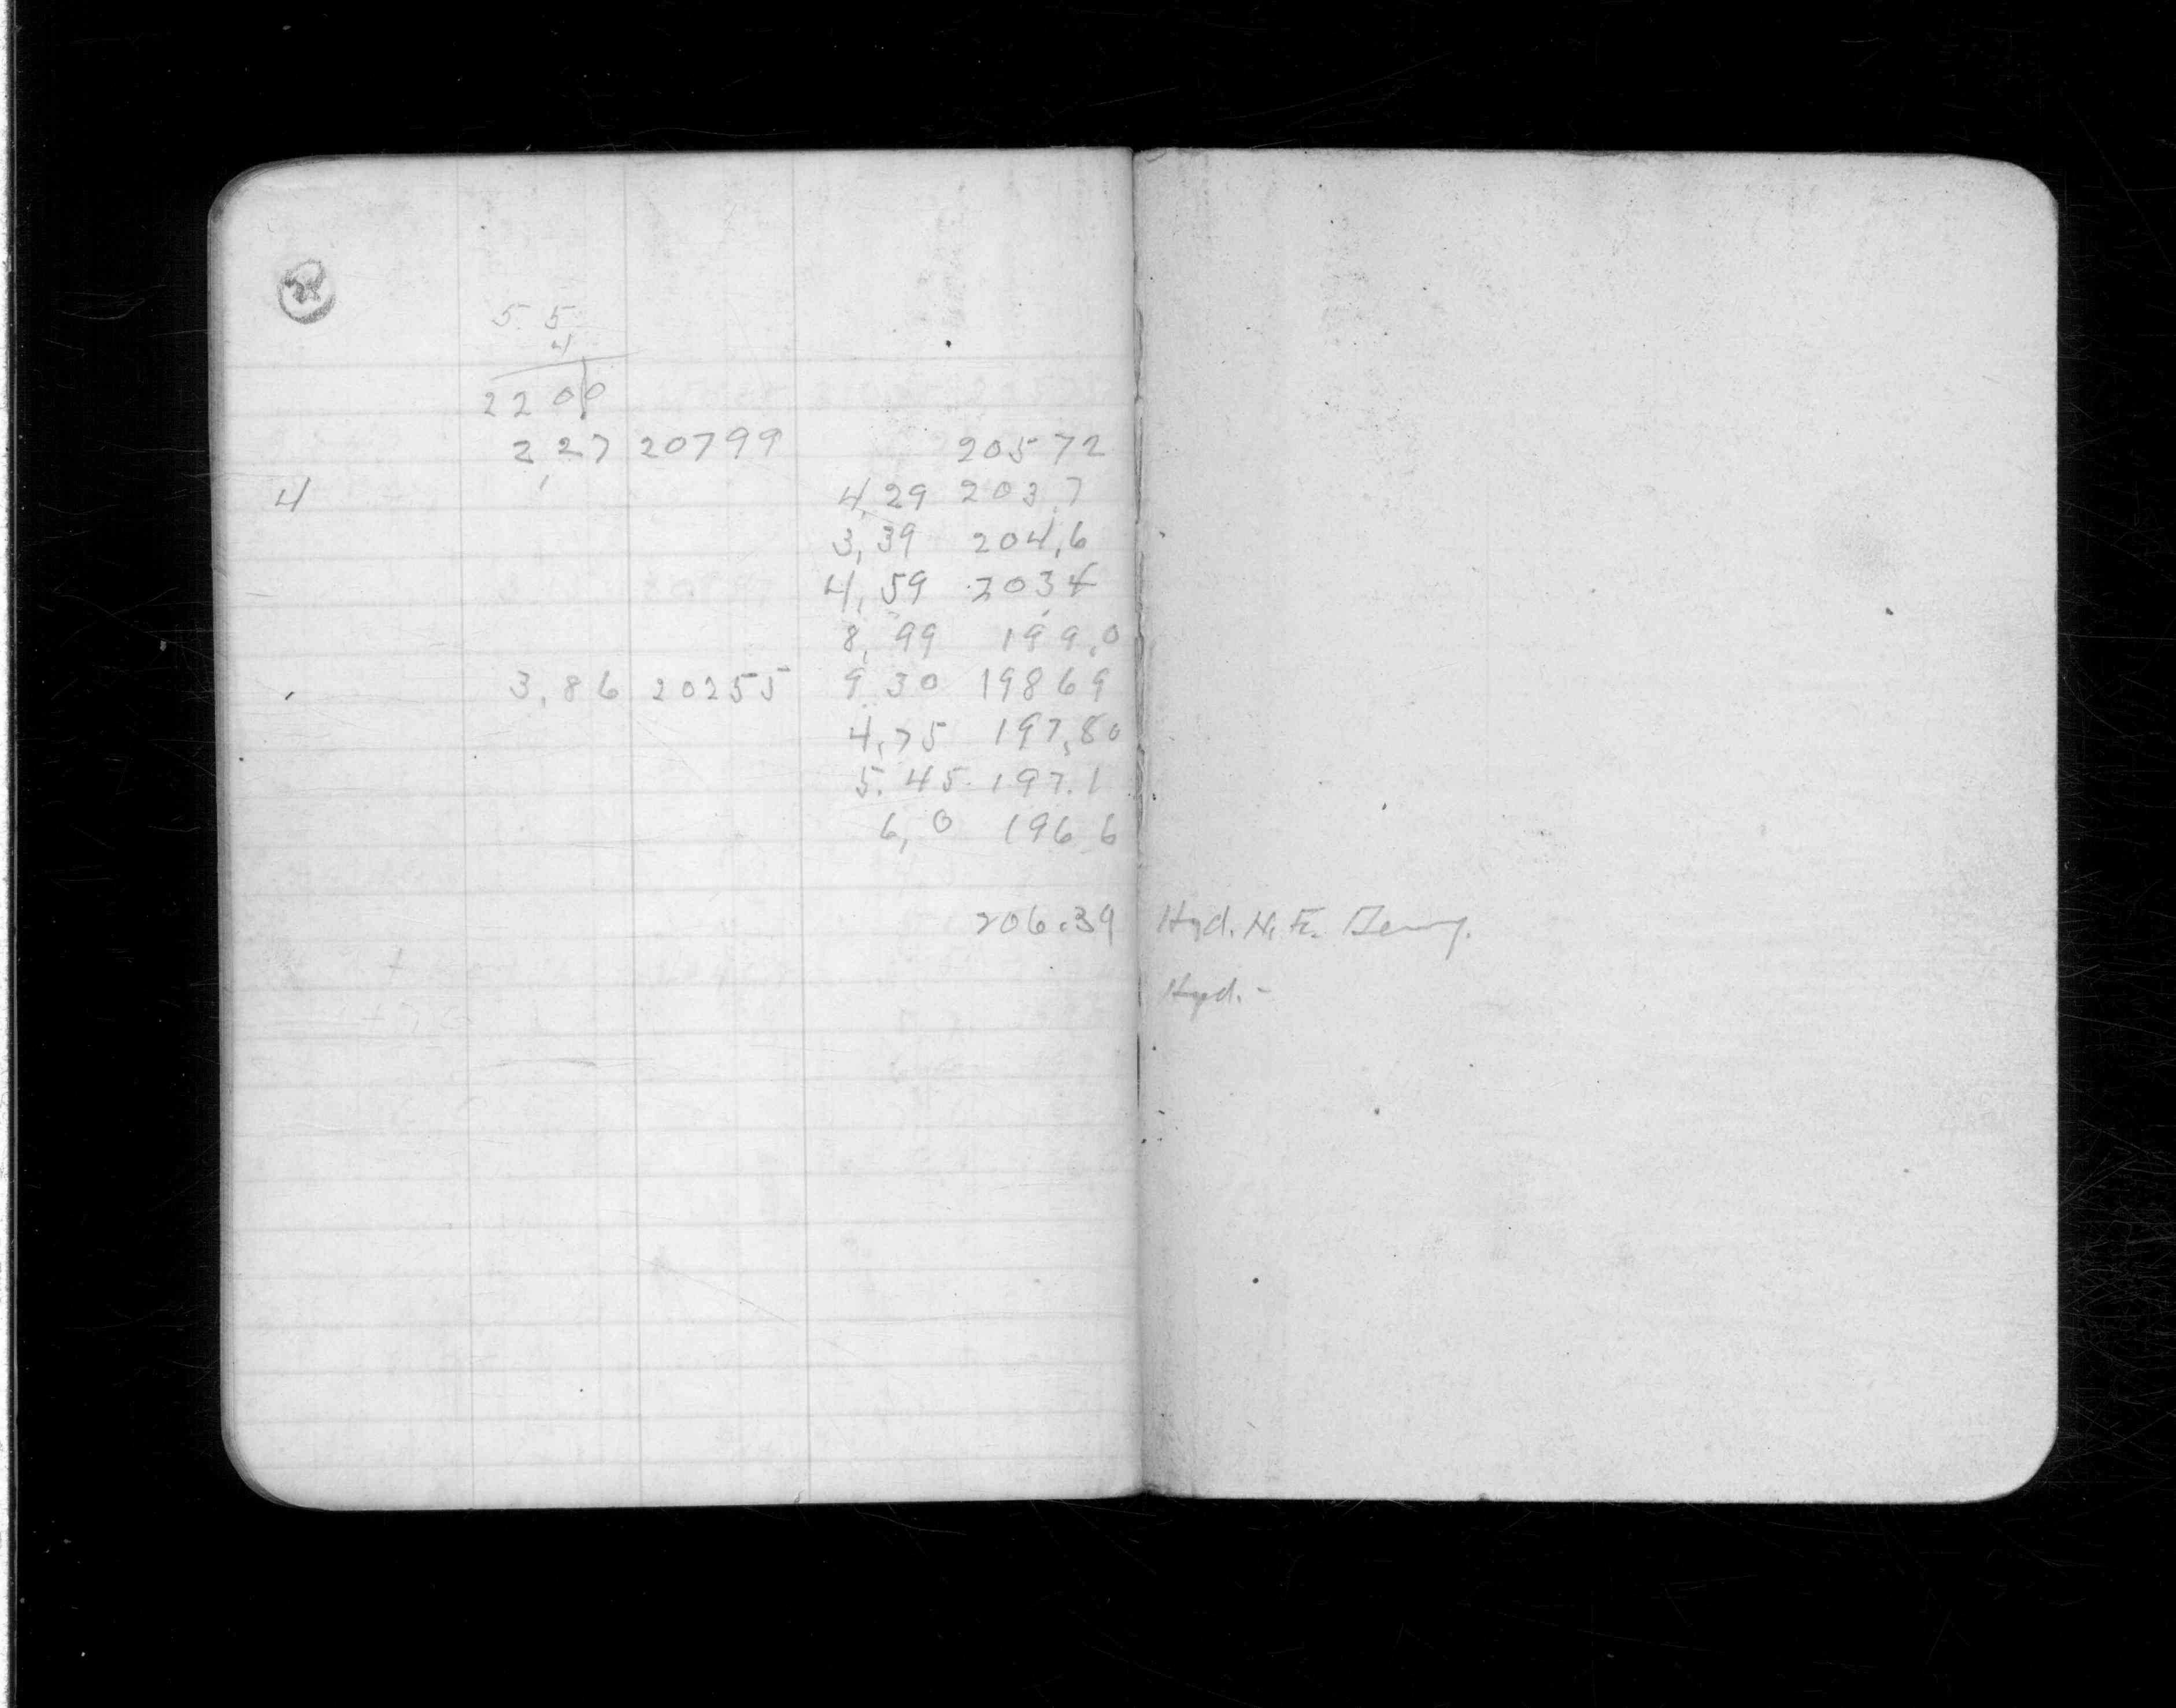 5 5
4
2200
2,27 20799 20572
4 4,29 203,7
3,39 204,6
4,59 203,4
8,99 199,0
3,86 20255 9.30 19869
4,75 197,80
5.45 197.1
6,0 196 6
206.39 Hyd. N. E.
Hyd. -